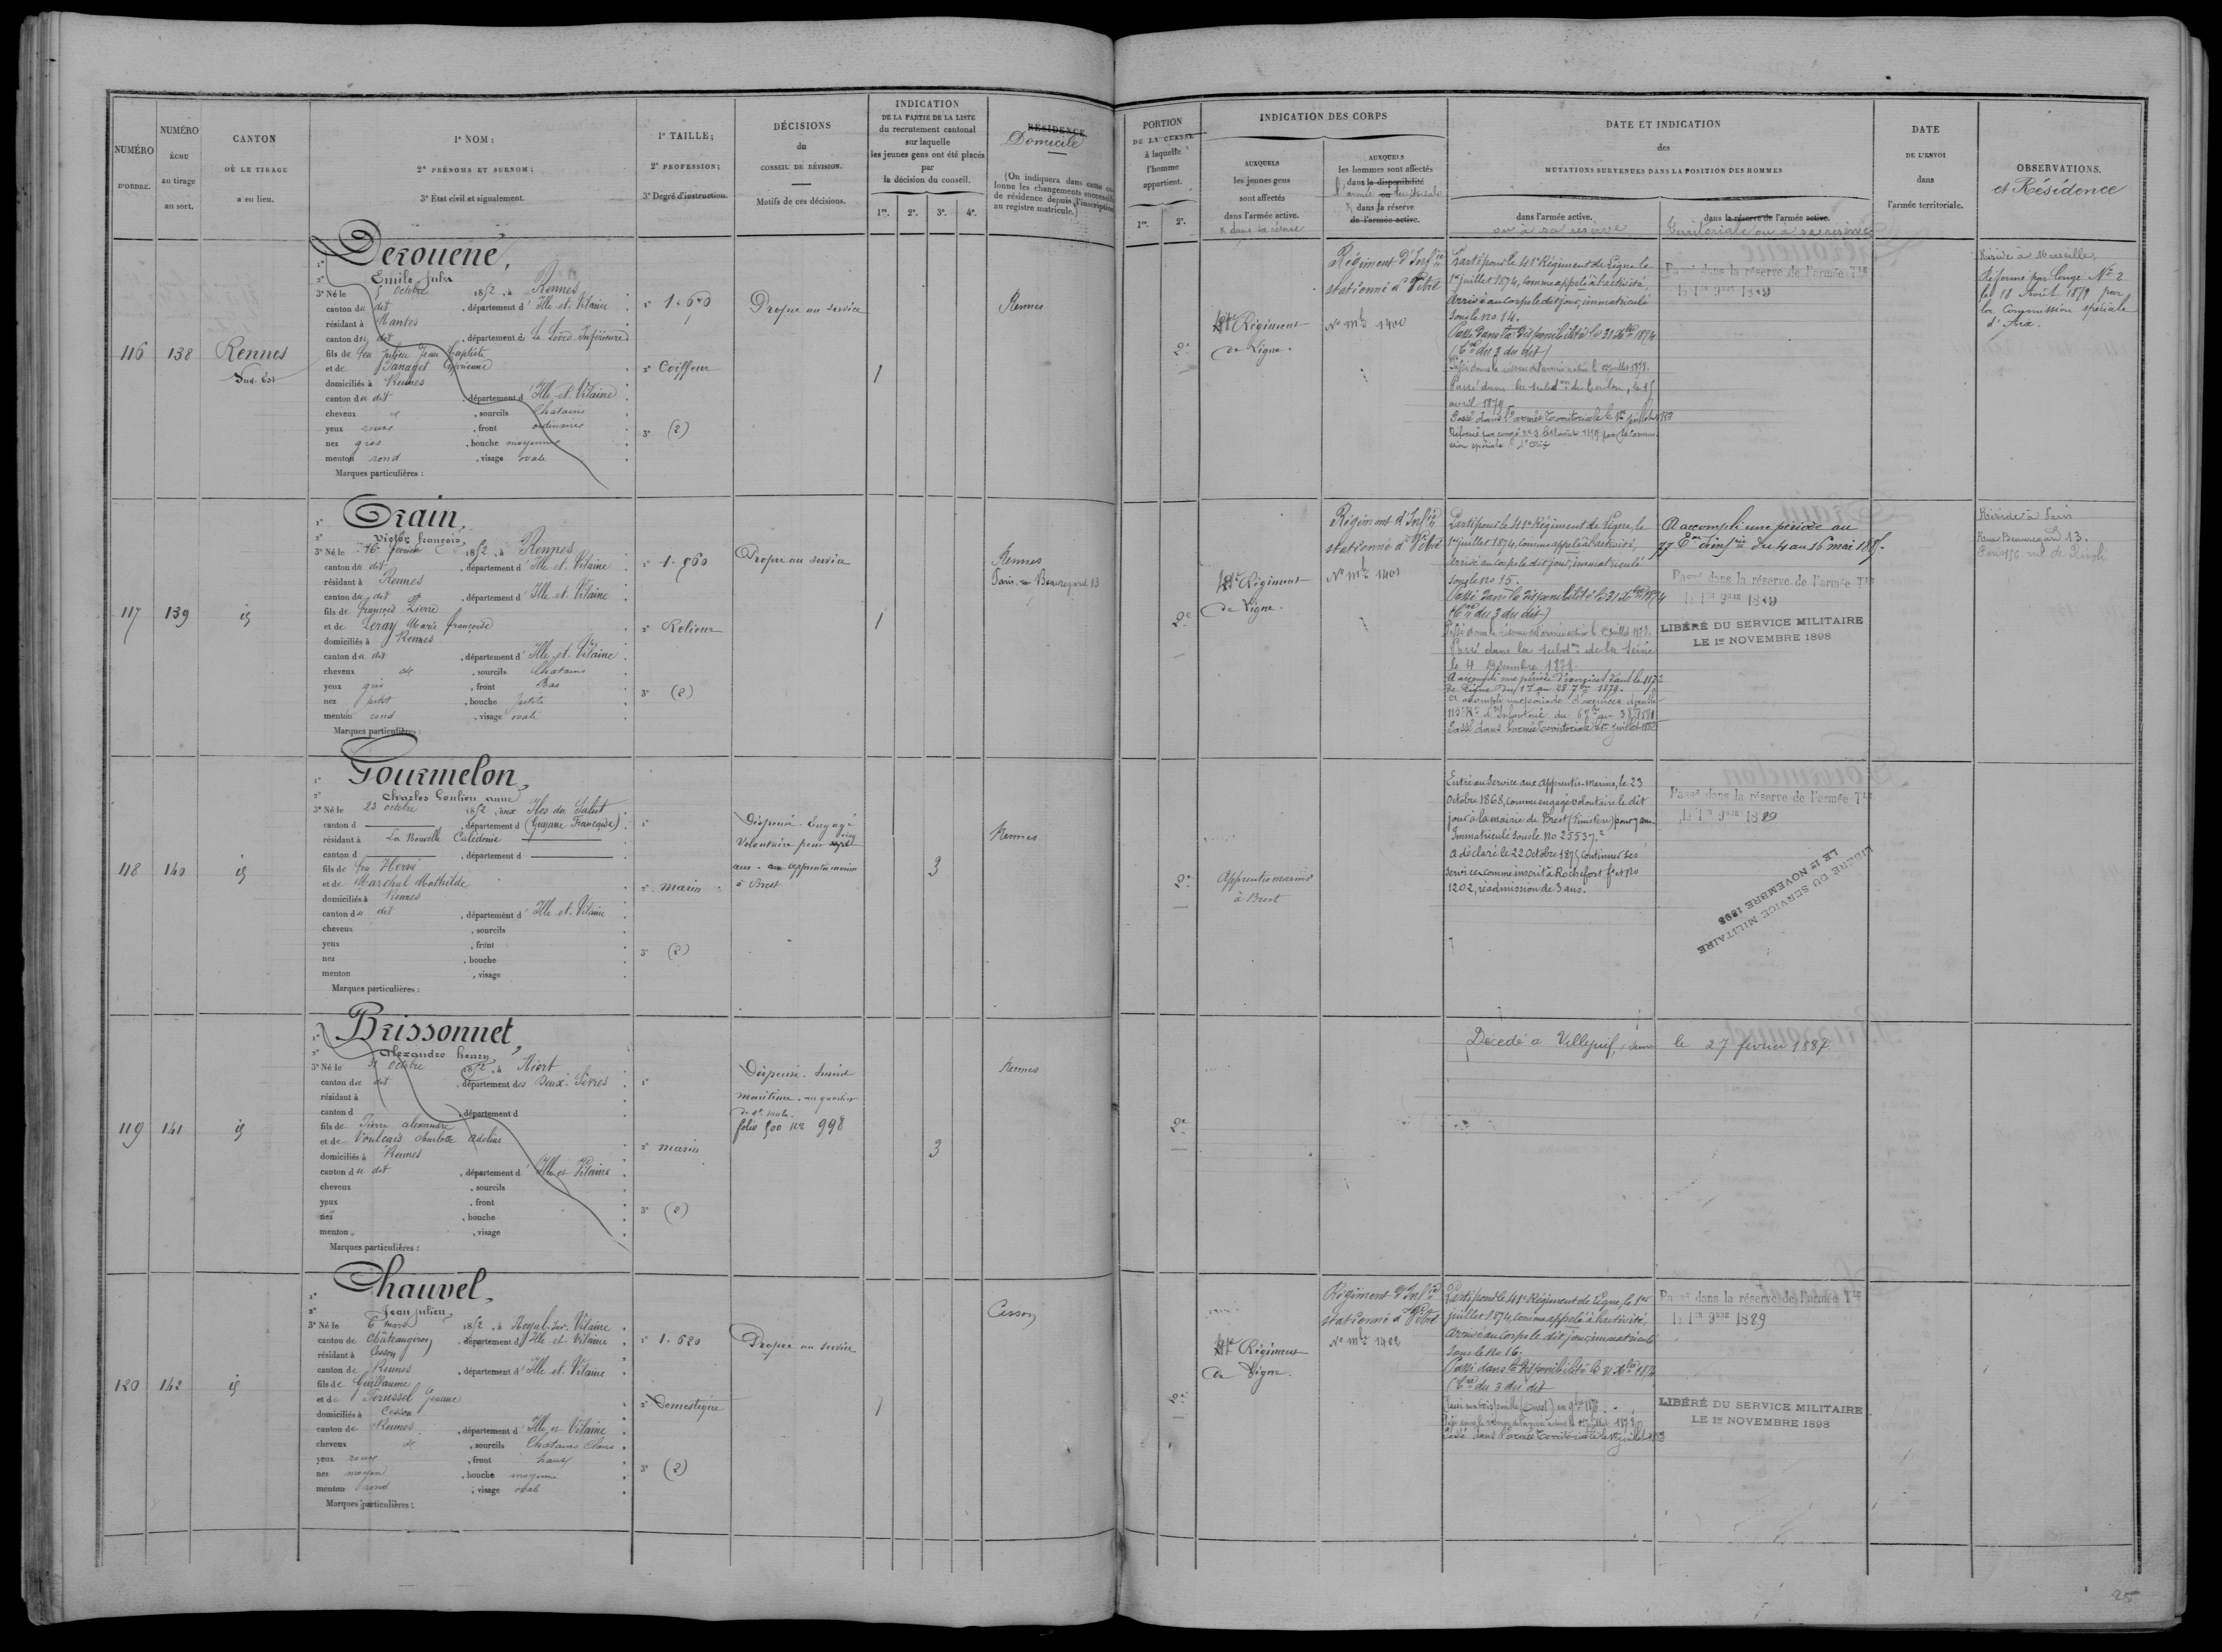 NUMÉRO
D'ORDRE.
NUMÉRO
ÉCHU
au tirage
au sort.
CANTON
OÙ LE TIRAGE
a eu lieu.
1° NOM ;
2° PRÉNOMS ET SURNOM ;
3° État civil et signalement.
1° TAILLE ;
2° PROFESSION ;
3° Degré d'instruction.
DÉCISIONS
du
CONSEIL DE RÉVISION.
Motifs de ces décisions.
INDICATION
DE LA PARTIE DE LA LISTE
du recrutement cantonal
sur laquelle
les jeunes gens ont été placés
par
la décision du conseil.
1re. 2e. 3e. 4e.
RÉSIDENCE
Domicile
(On indiquera dans cette colonne les changements successifs de résidence depuis l'inscription au registre matricule.)
PORTION
DE LA CLASSE
à laquelle
l'homme
appartient.
1re. 2e.
INDICATION DES CORPS
AUXQUELS
les jeunes gens
sont affectés
dans l'armée active.
AUXQUELS
les hommes sont affectés
dans la disponibilité
ou
dans la réserve
de l'armée active.
DATE ET INDICATION
des
MUTATIONS SURVENUES DANS LA POSITION DES HOMMES
dans l'armée active.
ou à sa réserve
dans la réserve de l'armée active.
Territoriale ou à sa réserve
DATE
DE L'ENVOI
dans
l'armée territoriale.
OBSERVATIONS.
et Résidence
116
138
Rennes
Sud-Est
Derouene,
Emile Jules
3° Né le 5 Octobre 1852, à Rennes
canton du dit, département d'Ille-et-Vilaine
résidant à Nantes
canton du dit, département de La Loire Inférieure
fils de feu Julien Jean Baptiste
et de
domiciliés à Rennes
canton du dit, département d'Ille-et-Vilaine
cheveux et, sourcils Chatains
yeux roux, front ordinaire
nez gros, bouche moyenne
menton rond, visage ovale
Marques particulières :
2° Coiffeur
3° (2)
Propre au service
1
Rennes
2e
41e Régiment
de Ligne.
Régiment d'Infie
stationné à Vitré
No mle 1400
Parti pour le 41e Régiment de Ligne le
1er juillet 1874, comme appelé à l'activité,
Arrivé au corps le dit jour, immatriculé
sous le no 14.
Passé dans la disponibilité le 31 Xbre 1874
(Cre du 3 du dit)
Passé dans la réserve de l'armée active le 1er juillet 1878.
Passé dans la subdon de Toulon, le 15
avril 1879
Passé dans l'armée Territoriale le 1er juillet 1883
Réformé par congé no 2 le 18 août 1879 par la Commission spéciale d'Aix
Passé dans la réserve de l'armée Tle
le 1er 9bre 1889
Réside à Marseille,
Réformé par Congé No 2
le 18 Août 1879 par
la Commission spéciale
d'Aix.
117
139
id
Orain,
Victor françois,
3° Né le 16 février 1852, à Rennes
canton du dit, département d'Ille-et-Vilaine
résidant à Rennes
canton du dit, département d'Ille-et-Vilaine
fils de François Pierre
et de Leray Marie françoise
domiciliés à Rennes
canton du dit, département d'Ille-et-Vilaine
cheveux et, sourcils Chatains
yeux gris, front Bas
nez petit, bouche petite
menton rond, visage ovale
Marques particulières :
1° 1.560
2° Relieur
3° (2)
Propre au service
1
Rennes
Paris, rue Beauregard 13
2e
41e Régiment
de Ligne.
Régiment d'Infie
stationné à Vitré
No mle 1401
Parti pour le 41e Régiment de Ligne, le
1er juillet 1874, comme appelé à l'activité,
Arrivé au corps le dit jour, immatriculé
sous le no 15.
Passé dans la disponibilité le 31 Xbre 1874
(Cre du 3 du dit)
Passé dans la réserve de l'armée active le 1er juillet 1878.
Passé dans la subdon de la Seine
le 4 Décembre 1878.
A accompli une période d'exercices dans le 117e
de Ligne du 1er au 28 7bre 1879.
Passé dans l'armée Territoriale le 1er juillet 1883
A accompli une période au
77 Ere d'infie du 4 au 16 mai 1885.
Passé dans la réserve de l'armée Tle
le 1er 9bre 1889
LIBÉRÉ DU SERVICE MILITAIRE
LE 1er NOVEMBRE 1898
Réside à Paris
Rue Beauregard 13.
Paris 156 rue de Rivoli
118
140
id
Gourmelon,
Charles Goulven anne
3° Né le 23 octobre 1852, aux Iles du Salut
canton d, département d (Guyane Française)
résidant à La Nouvelle Calédonie
canton d, département d
fils de feu Hervé
et de Marchal Mathilde
domiciliés à Rennes
canton du dit, département d'Ille-et-Vilaine
cheveux, sourcils
yeux, front
nez, bouche
menton, visage
Marques particulières :
2° marin
3° (2)
Dispensé. Engagé
Volontaire pour sept
ans. aux apprentis marins
à Brest
3
Rennes
2e
Apprentis marins
à Brest
Entré au service aux apprentis-marins, le 23
Octobre 1868, comme engagé volontaire le dit
jour à la mairie de Brest (Finistère) pour 7 ans.
Immatriculé sous le no 25537.2
A déclaré le 22 Octobre 1875 continuer ses
services comme inscrit à Rochefort fo et no
1202, réadmission de 3 ans.
Passé dans la réserve de l'armée Tle
le 1er 9bre 1889
LIBÉRÉ DU SERVICE MILITAIRE
LE 1er NOVEMBRE 1898
119
141
id
Brissonnet,
alexandre henry,
3° Né le 31 Octobre 1852, à Niort
canton du dit, département des Deux-Sèvres
résidant à
canton d, département d
fils de Pierre alexandre
et de Charlotte Adeline
domiciliés à Rennes
canton du dit, département d'Ille-et-Vilaine
cheveux, sourcils
yeux, front
nez, bouche
menton, visage
Marques particulières :
2° marin
3° (2)
Dispensé. Inscrit
maritime. au quartier
de St. Malo.
folio 500 no 998
3
Rennes
2e
Décédé à Villejuif, Seine le 27 février 1887
120
142
id
Chauvel,
Jean Julien,
3° Né le 6 mars 1852, à Noyal-sur-Vilaine
canton de Châteaugiron, département d'Ille-et-Vilaine
résidant à Cesson
canton de Rennes, département d'Ille-et-Vilaine
fils de Guillaume
et de Perussel Jeanne
domiciliés à Cesson
canton de Rennes, département d'Ille-et-Vilaine
cheveux et, sourcils Chatains Clairs
yeux roux, front haut
nez moyen, bouche moyenne
menton rond, visage ovale
Marques particulières :
1° 1.620
2° Domestique
3° (2)
Propre au service
1
Cesson
2e
41e Régiment
de Ligne.
Régiment d'Infie
stationné à Vitré
No mle 1402
Parti pour le 41e Régiment de Ligne, le 1er
juillet 1874, comme appelé à l'activité,
Arrivé au corps le dit jour, immatriculé
sous le no 16.
Passé dans la disponibilité le 31 Xbre 1874
(Cre du 3 du dit
Passé dans la réserve de l'armée active le 1er juillet 1878
Passé dans l'armée Territoriale le 1er juillet 1883
Passé dans la réserve de l'armée Tle
le 1er 9bre 1889
LIBÉRÉ DU SERVICE MILITAIRE
LE 1er NOVEMBRE 1898
25